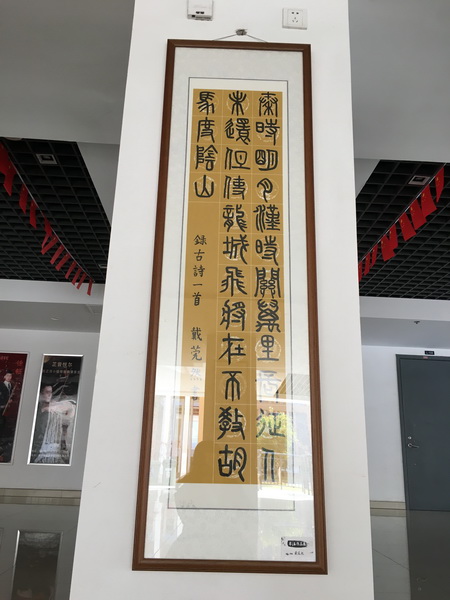 秦時明月漢時關萬里長征人
未還但使龍城飛將在不教胡
馬度陰山
錄古詩一首 戴莞